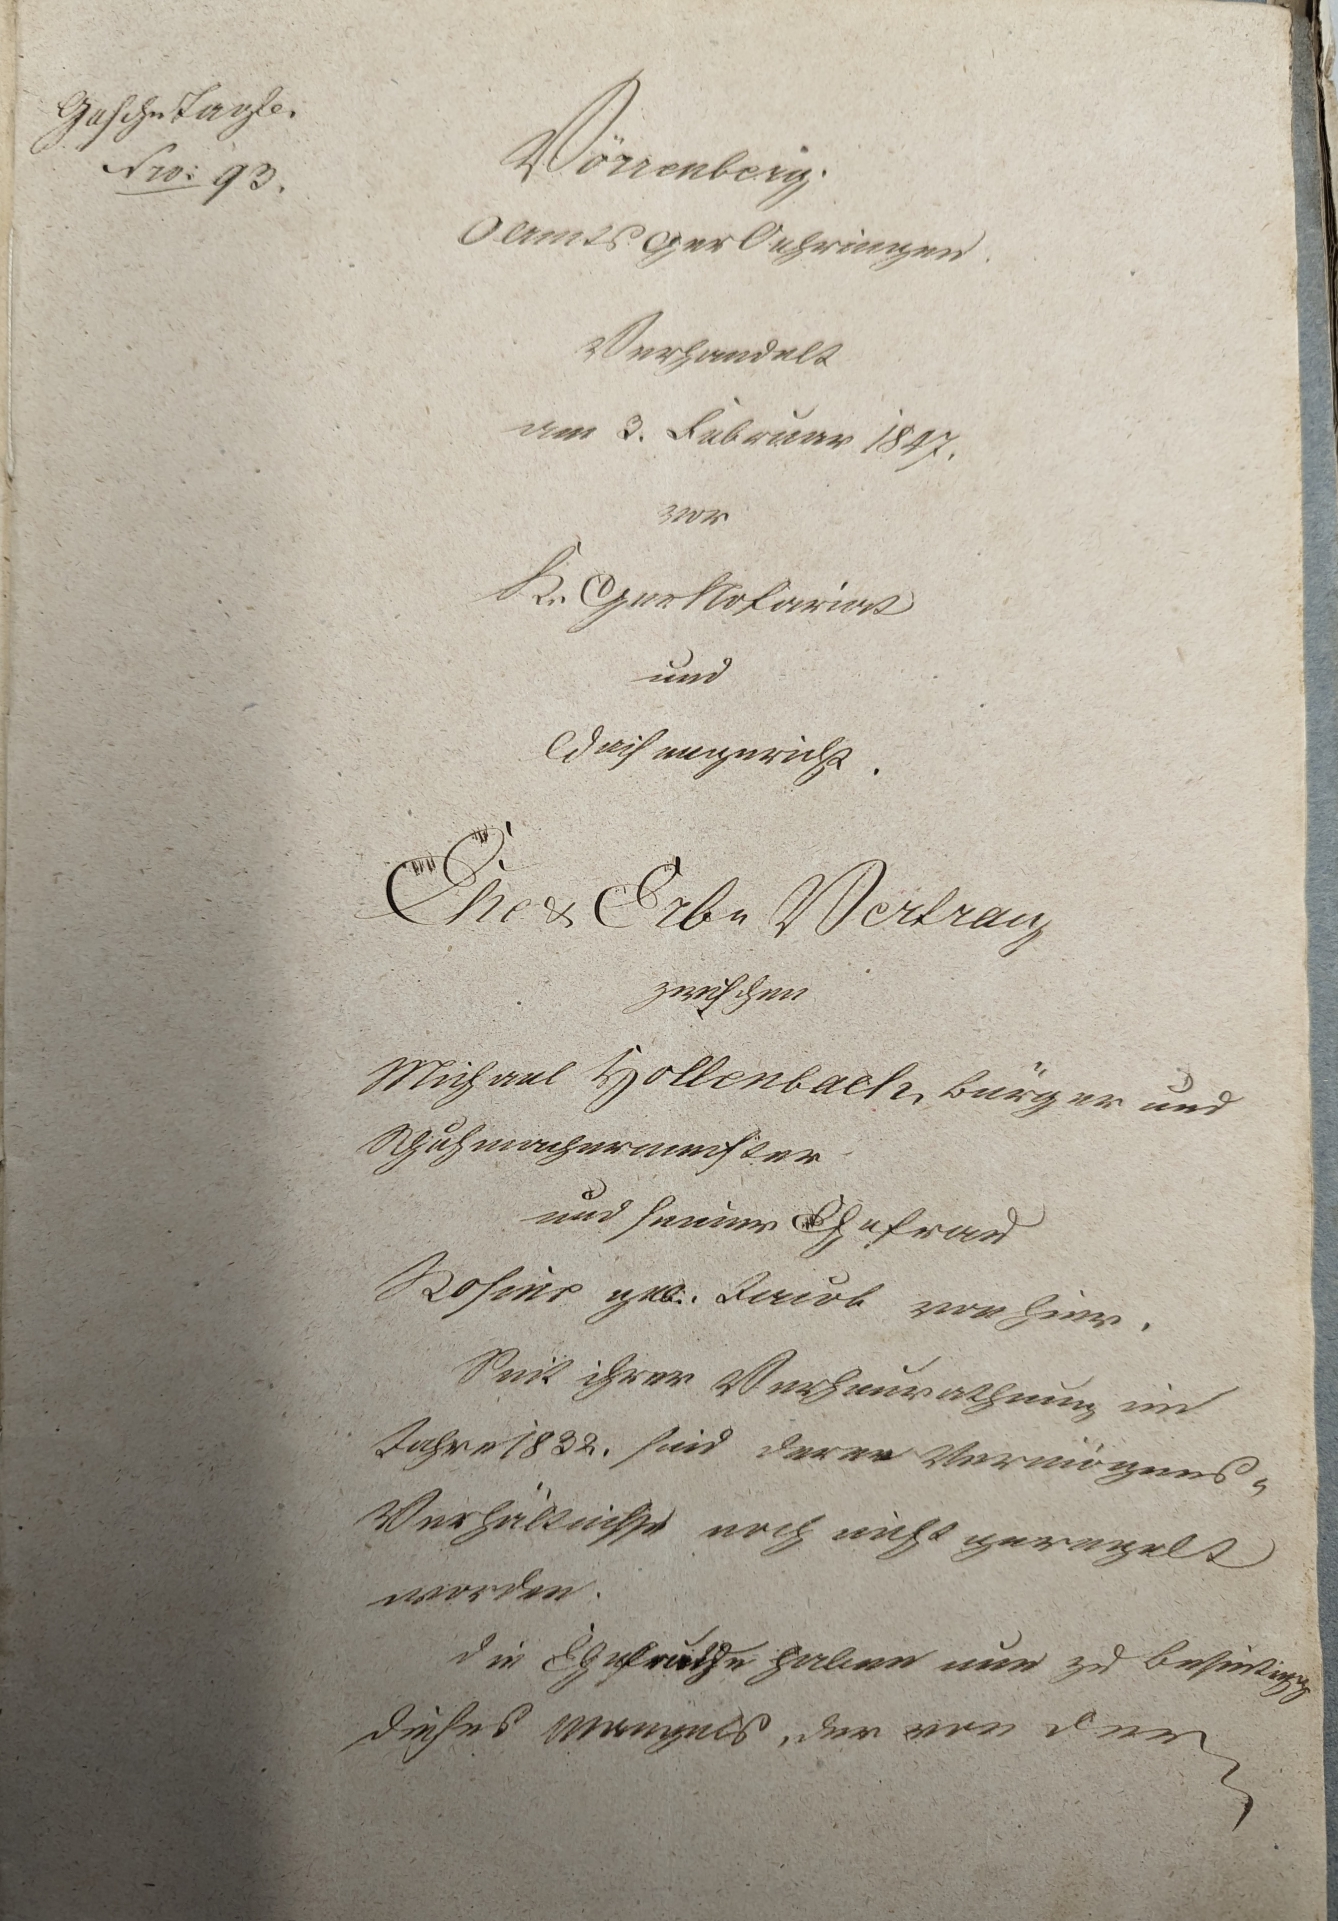 Gesch. Tagb.
Nro: 93.
Vorrenberg.
OAmts Ger Oehringen.
Verhandelt
am 3. Februar 1847.
vor
K. Ger Notariat
und
Waisengericht.
Ehe & Erbs Vertrag
zwischen
Michael Hollenbach, Bürger und
Schuhmachermeister
und seiner Ehefrau
Rosine geb. Jacob von hier.
Seit ihrer Verheurathung im
Jahre 1832. sind deren Vermögens-
Verhältnisse noch nicht geregelt
worden.
Die Eheleute haben nun zu Beseitigg
dieses Mangels, der von den